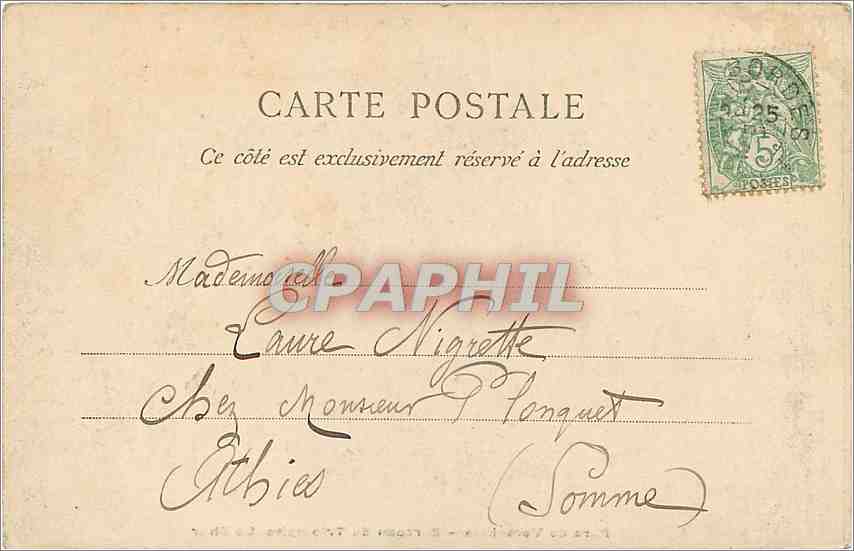 CARTE POSTALE
Ce côté est exclusivement réservé à l'adresse
CORDES
25
5
POSTES
CPAPHIL
Mademoiselle
Laure Nigrette
Chez Monsieur Plonquet
Athies (Somme)